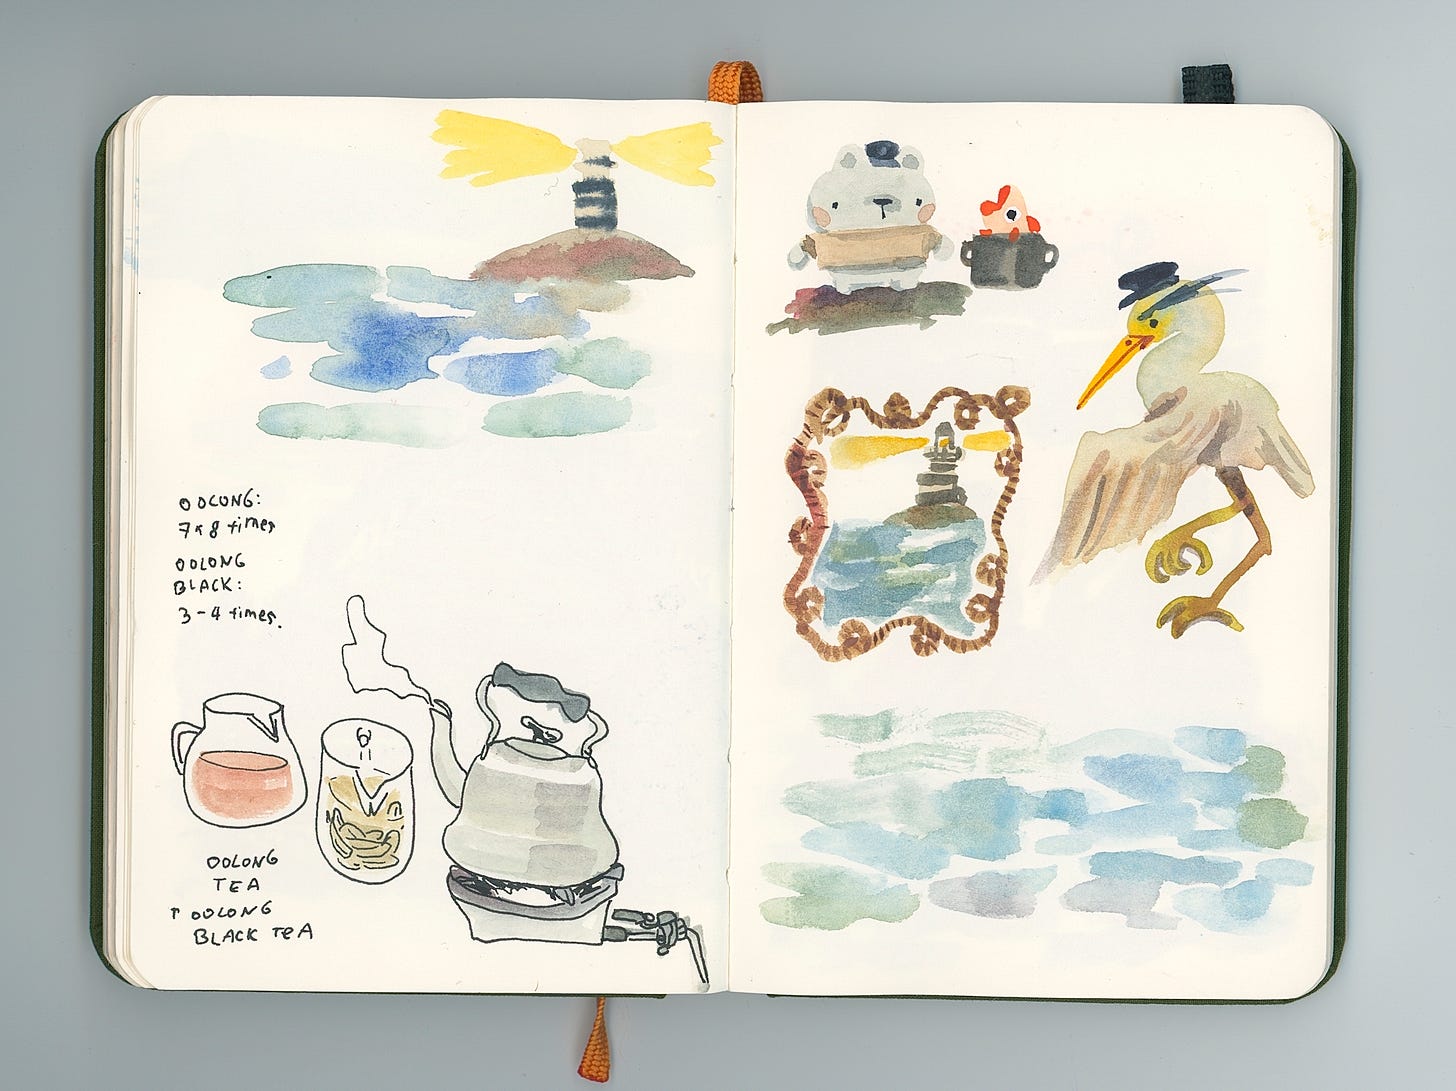 OOLONG:
7-8 times
OOLONG
BLACK:
3-4 times.
OOLONG
TEA
↑ OOLONG
BLACK TEA